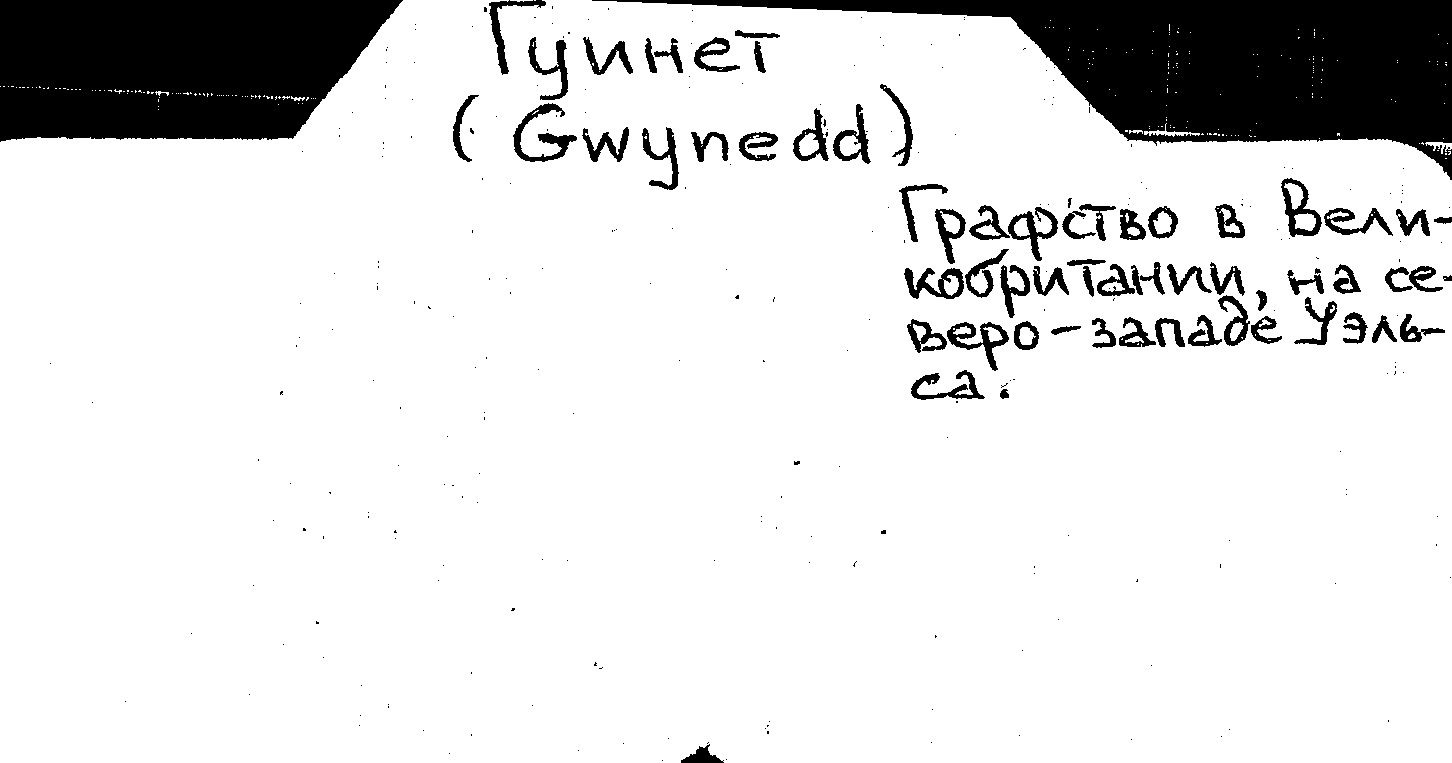 Гуинет
(Gwynedd)
Графство в Вели-
кобритании, на се-
веро-западе Уэль-
са.